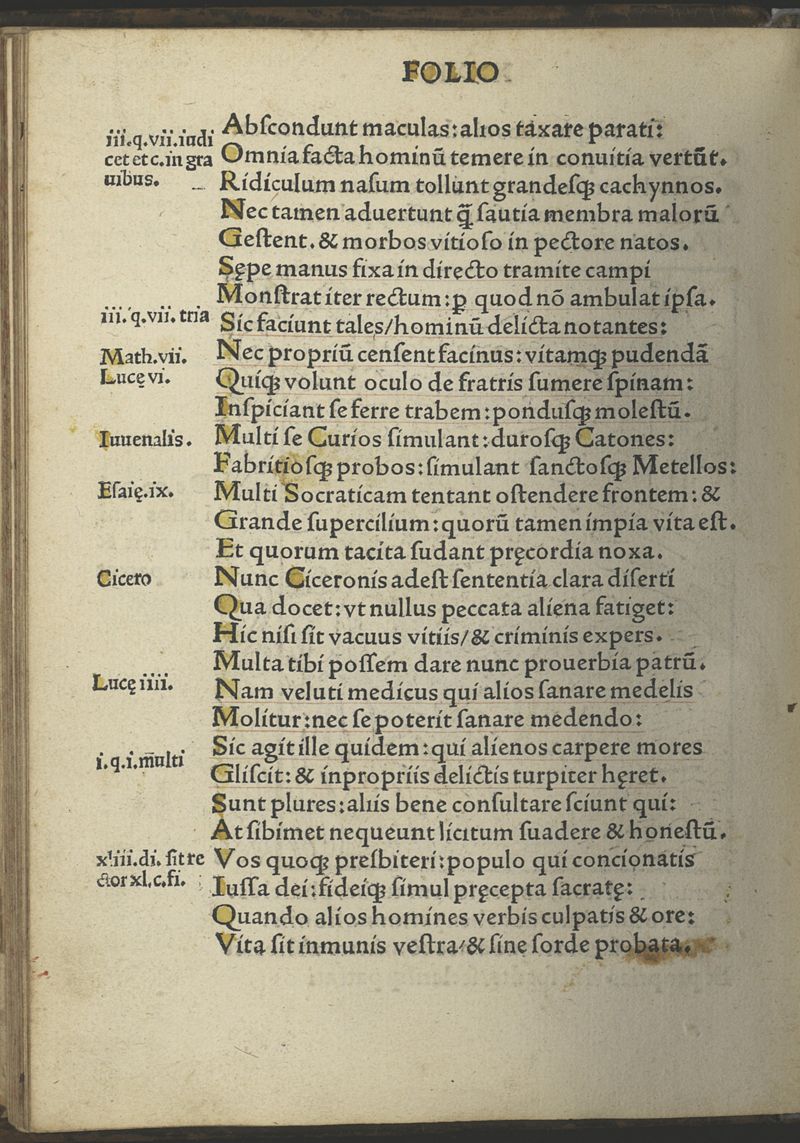 FOLIO
iii.q.vii.iudi
cet et c.in gra
uibus.
Abſcondunt maculas:alios taxare parati:
Omnia facta hominū temere in conuitia vertūt.
Ridiculum naſum tollunt grandeſqꝫ cachynnos.
Nec tamen aduertunt q̄ ſautia membra malorū
Geſtent.& morbos vitioſo in pectore natos.
Sępe manus fixa in directo tramite campi
Monſtrat iter rectum:ꝑ quod nō ambulat ipſa.
iii.q.vii.tria
Sic faciunt tales/hominū delicta notantes:
Math.vii.
Nec propriū cenſent facinus:vitamqꝫ pudendā
Lucę vi.
Quiqꝫ volunt oculo de fratris ſumere ſpinam:
Inſpiciant ſe ferre trabem:ponduſqꝫ moleſtū.
Iuuenalis.
Multi ſe Curios ſimulant:duroſqꝫ Catones:
Fabritioſqꝫ probos:ſimulant ſanctoſqꝫ Metellos:
Eſaię.ix.
Multi Socraticam tentant oſtendere frontem:&
Grande ſupercilium:quorū tamen impia vita eſt.
Et quorum tacita ſudant pręcordia noxa.
Cicero
Nunc Ciceronis adeſt ſententia clara diſerti
Qua docet:vt nullus peccata aliena fatiget:
Hic niſi ſit vacuus vitiis/& criminis expers.
Multa tibi poſſem dare nunc prouerbia patrū.
Lucę iiii.
Nam veluti medicus qui alios ſanare medelis
Molitur:nec ſe poterit ſanare medendo:
i.q.i.multi
Sic agit ille quidem:qui alienos carpere mores
Gliſcit:& inpropriis delictis turpiter hęret.
Sunt plures:aliis bene conſultare ſciunt qui:
At ſibimet nequeunt licitum ſuadere & honeſtū.
xliii.di.ſit re
ctor xl.c.fi.
Vos quoqꝫ preſbiteri:populo qui concionatis
Iuſſa dei:fideiqꝫ ſimul pręcepta ſacratę:
Quando alios homines verbis culpatis & ore:
Vita ſit inmunis veſtra/& ſine ſorde probata.